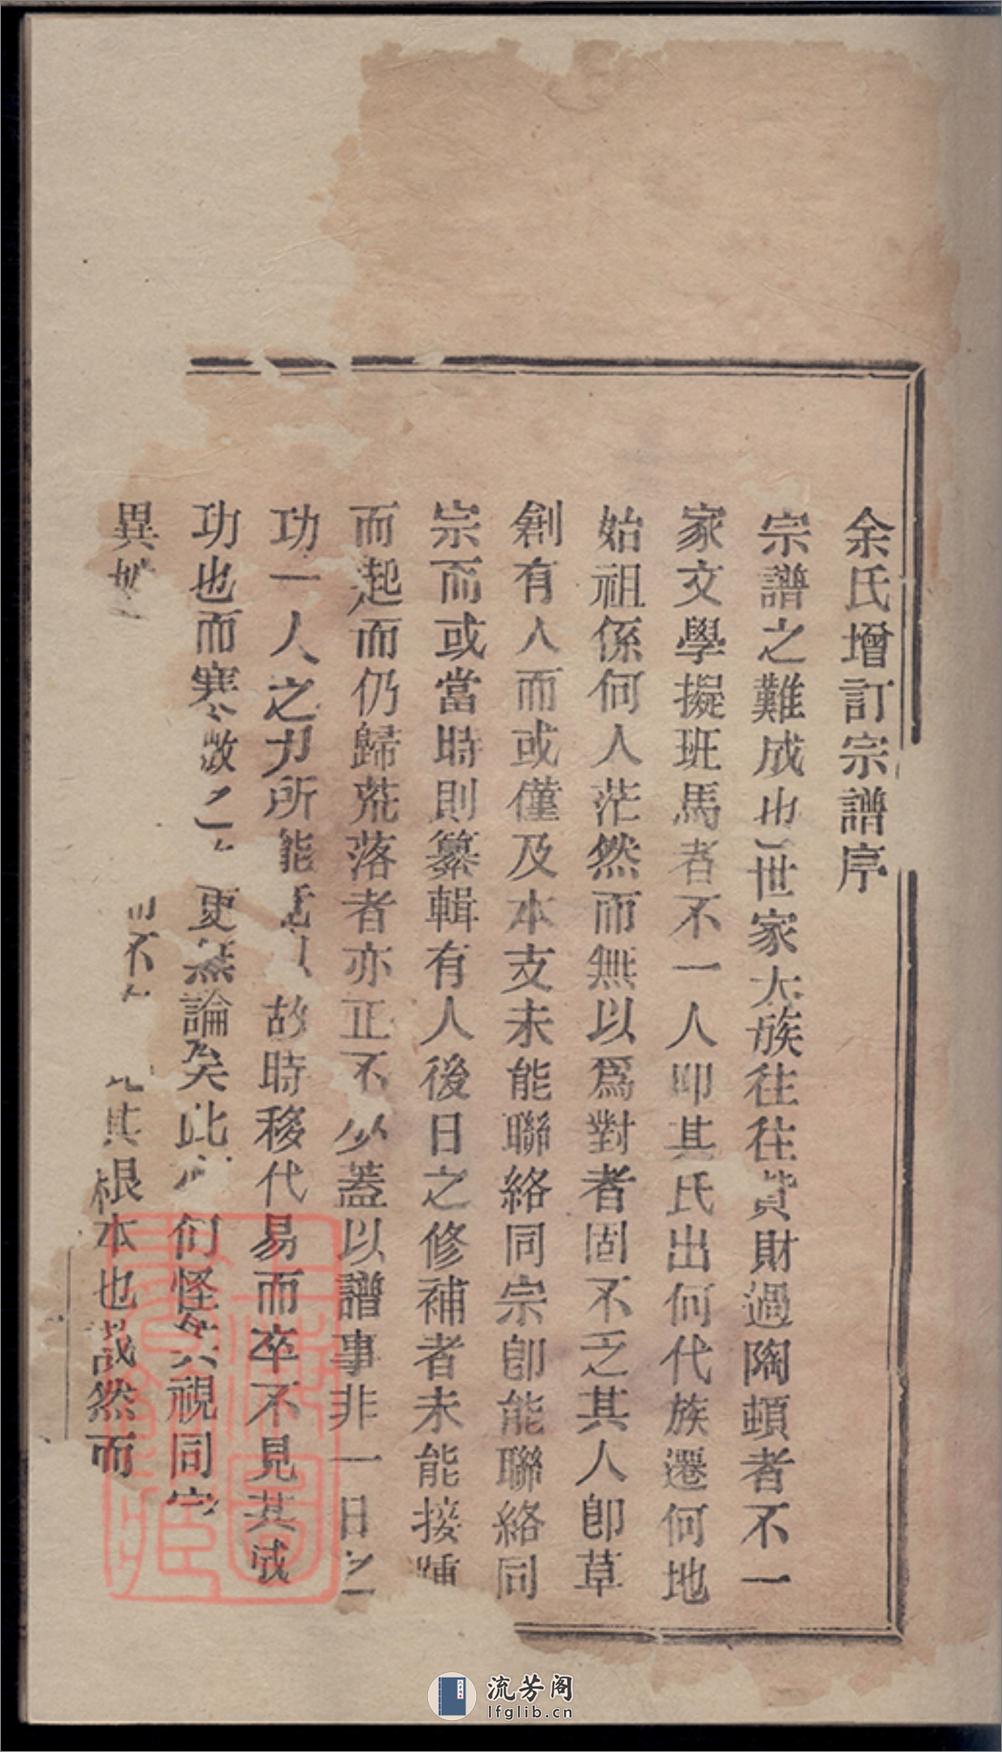 余氏增訂宗譜序
宗譜之難成也世家大族往往貲財過陶頓者不一
家文學擬班馬者不一人即其氏出何代族遷何地
始祖係何人茫然而無以爲對者固不乏其人即草
創有人而或僅及本支未能聯絡同宗即能聯絡同
宗而或當時則纂輯有人後日之修補者未能接踵
而起而仍歸荒落者亦正不少蓋以譜事非一日之
功一人之力所能 故時移代易而卒不見其成
功也而寒 之 更無論矣此 们怪其視同宗
異 不 其根本也哉然而
上海圖書館藏
流芳阁
lfglib.cn